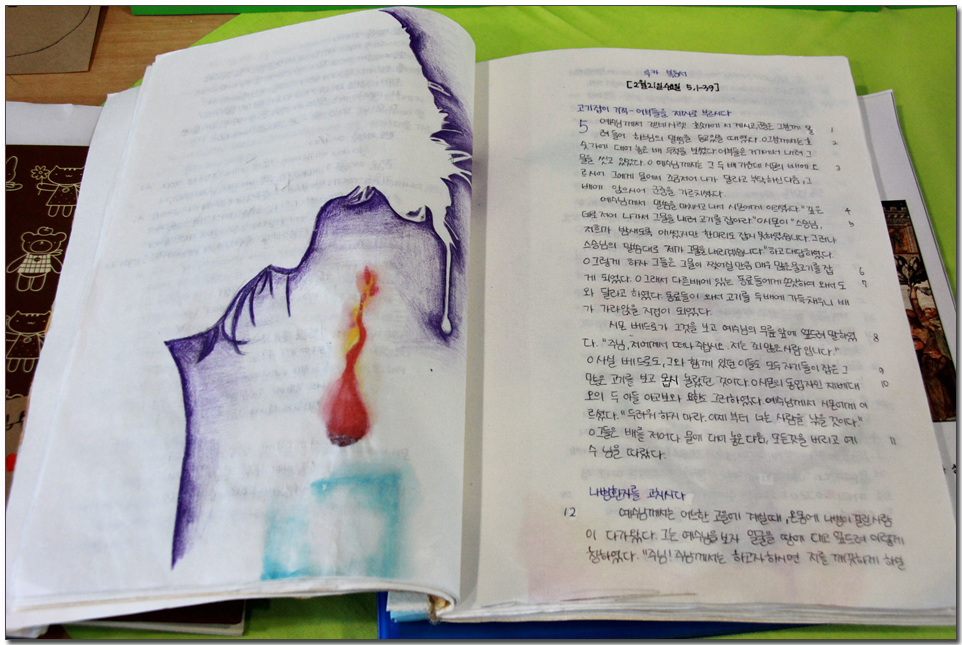 루카 복음서
[2월21일 수요일 5,1-39]
고기잡이 기적-어부들을 제자로 부르시다
5 예수님께서 겐네사렛 호숫가에 서 계시고, 군중은 그분께 몰 1
려들어 하느님의 말씀을 듣고 있을 때였다. ○그분께서는 호 2
숫가에 대어 놓은 배 두 척을 보셨다. 어부들은 거기에서 내려 그
물을 씻고 있었다. ○예수님께서는 그 두 배 가운데 시몬의 배에 오 3
르시어 그에게 뭍에서 조금 저어 나가 달라고 부탁하신 다음, 그
배에 앉으시어 군중을 가르치셨다.
예수님께서 말씀을 마치시고 나서 시몬에게 이르셨다. "깊은 4
데로 저어 나가서 그물을 내려 고기를 잡아라." ○시몬이 "스승님, 5
저희가 밤새도록 애썼지만 한마리도 잡지 못하였습니다. 그러나
스승님의 말씀대로 제가 그물을 내리겠습니다." 하고 대답하였다.
○그렇게 하자 그들은 그물이 찢어질 만큼 매우 많은 물고기를 잡 6
게 되었다. ○그래서 다른 배에 있는 동료들에게 손짓하여 와서 도 7
와 달라고 하였다. 동료들이 와서 고기를 두 배에 가득 채우니 배
가 가라앉을 지경이 되었다.
시몬 베드로가 그것을 보고 예수님의 무릎 앞에 엎드려 말하였 8
다. "주님, 저에게서 떠나 주십시오. 저는 죄 많은 사람입니다."
○사실 베드로도, 그와 함께 있던 이들도 모두 자기들이 잡은 그 9
많은 고기를 보고 몹시 놀랐던 것이다. ○시몬의 동업자인 제베대 10
오의 두 아들 야고보와 요한도 그러하였다. 예수님께서 시몬에게 이
르셨다. "두려워하지 마라. 이제부터 너는 사람을 낚을 것이다."
○그들은 배를 저어다 뭍에 대어 놓은 다음, 모든것을 버리고 예 11
수님을 따랐다.
나병환자를 고치시다
12 예수님께서 어느 한 고을에 계실 때, 온몸에 나병이 걸린 사람
이 다가왔다. 그는 예수님을 보자 얼굴을 땅에 대고 엎드려 이렇게
청하였다. "주님! 주님께서는 하고자 하시면 저를 깨끗하게 하실